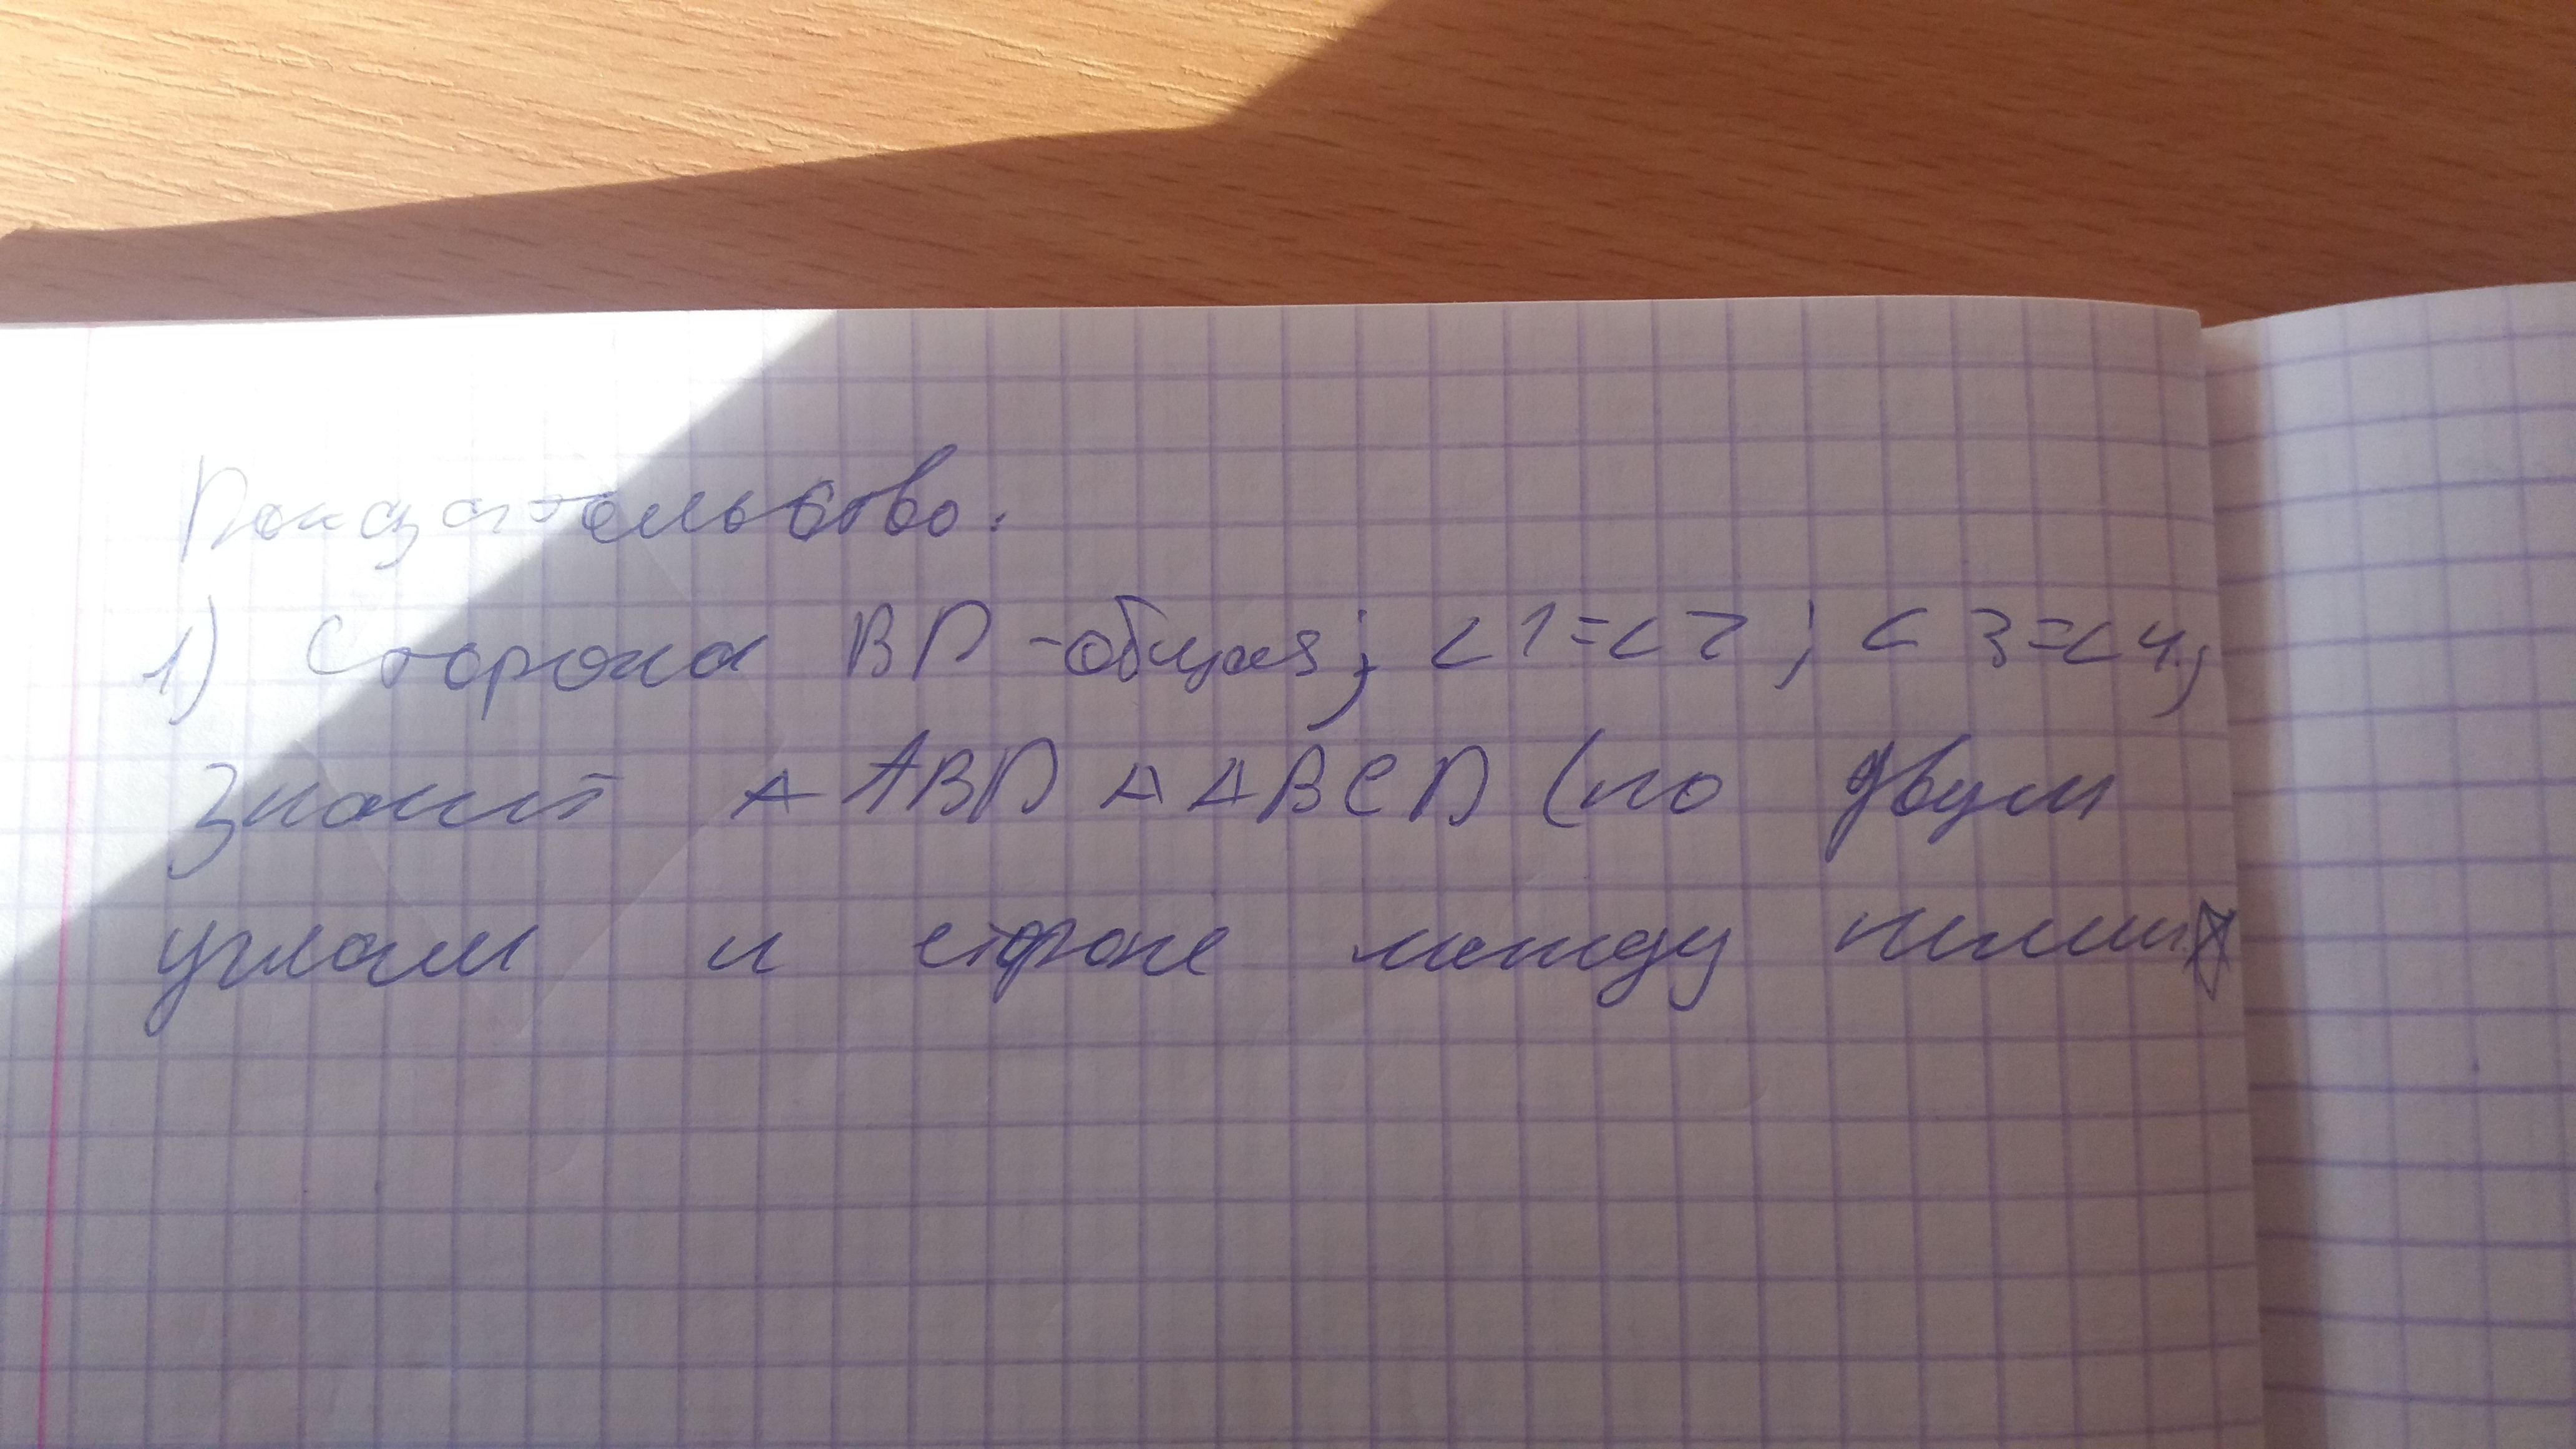 Доказательство.
1) Сторона BD - общая; ∠1=∠2; ∠3=∠4;
Значит △ ABD △ ABCD (по двум
углам и стороне между ними